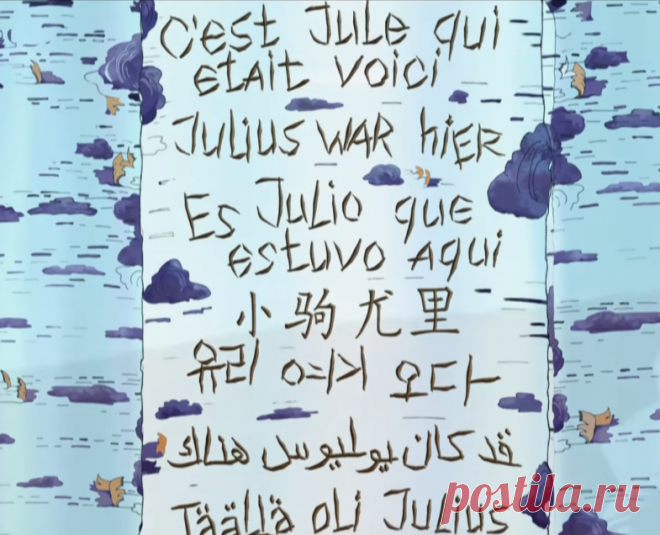 C'EST JULE QUI
ETAIT VOICI
JULIUS WAR hiER
ES JULIO QUE
ESTUVO AQUI
小驹尤里
유리 여기 오다
قد كان يوليوس هناك
TÄÄLLÄ OLI JULIUS
postila.ru